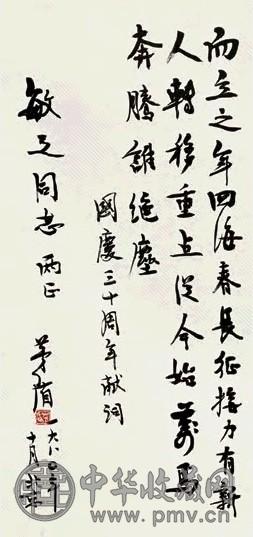 而立之年四海春長征接力有新
人轉移重点從今始萬馬
奔騰誰絶塵
國慶三十周年献詞
敏之同志兩正
茅盾
一九八〇年
十月
中华收藏网
www.pmv.cn